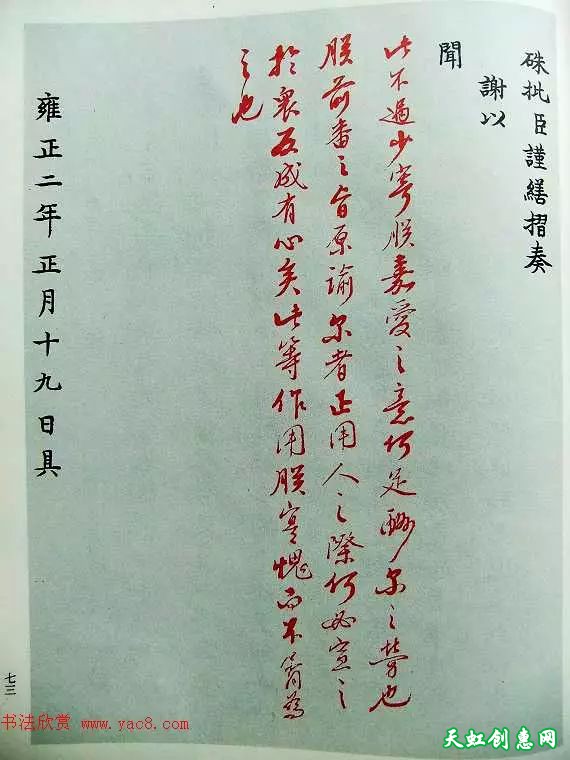 硃批臣謹繕摺奏
謝以
聞
此不過少寄朕嘉愛之意何足酬尔之勞也
朕前番之旨原諭尔者正用人之際何必宣之
於衆反成有心矣此等作用朕實愧而不屑為
之也
雍正二年正月十九日具
七三
书法欣赏 www.yac8.com
天虹创惠网